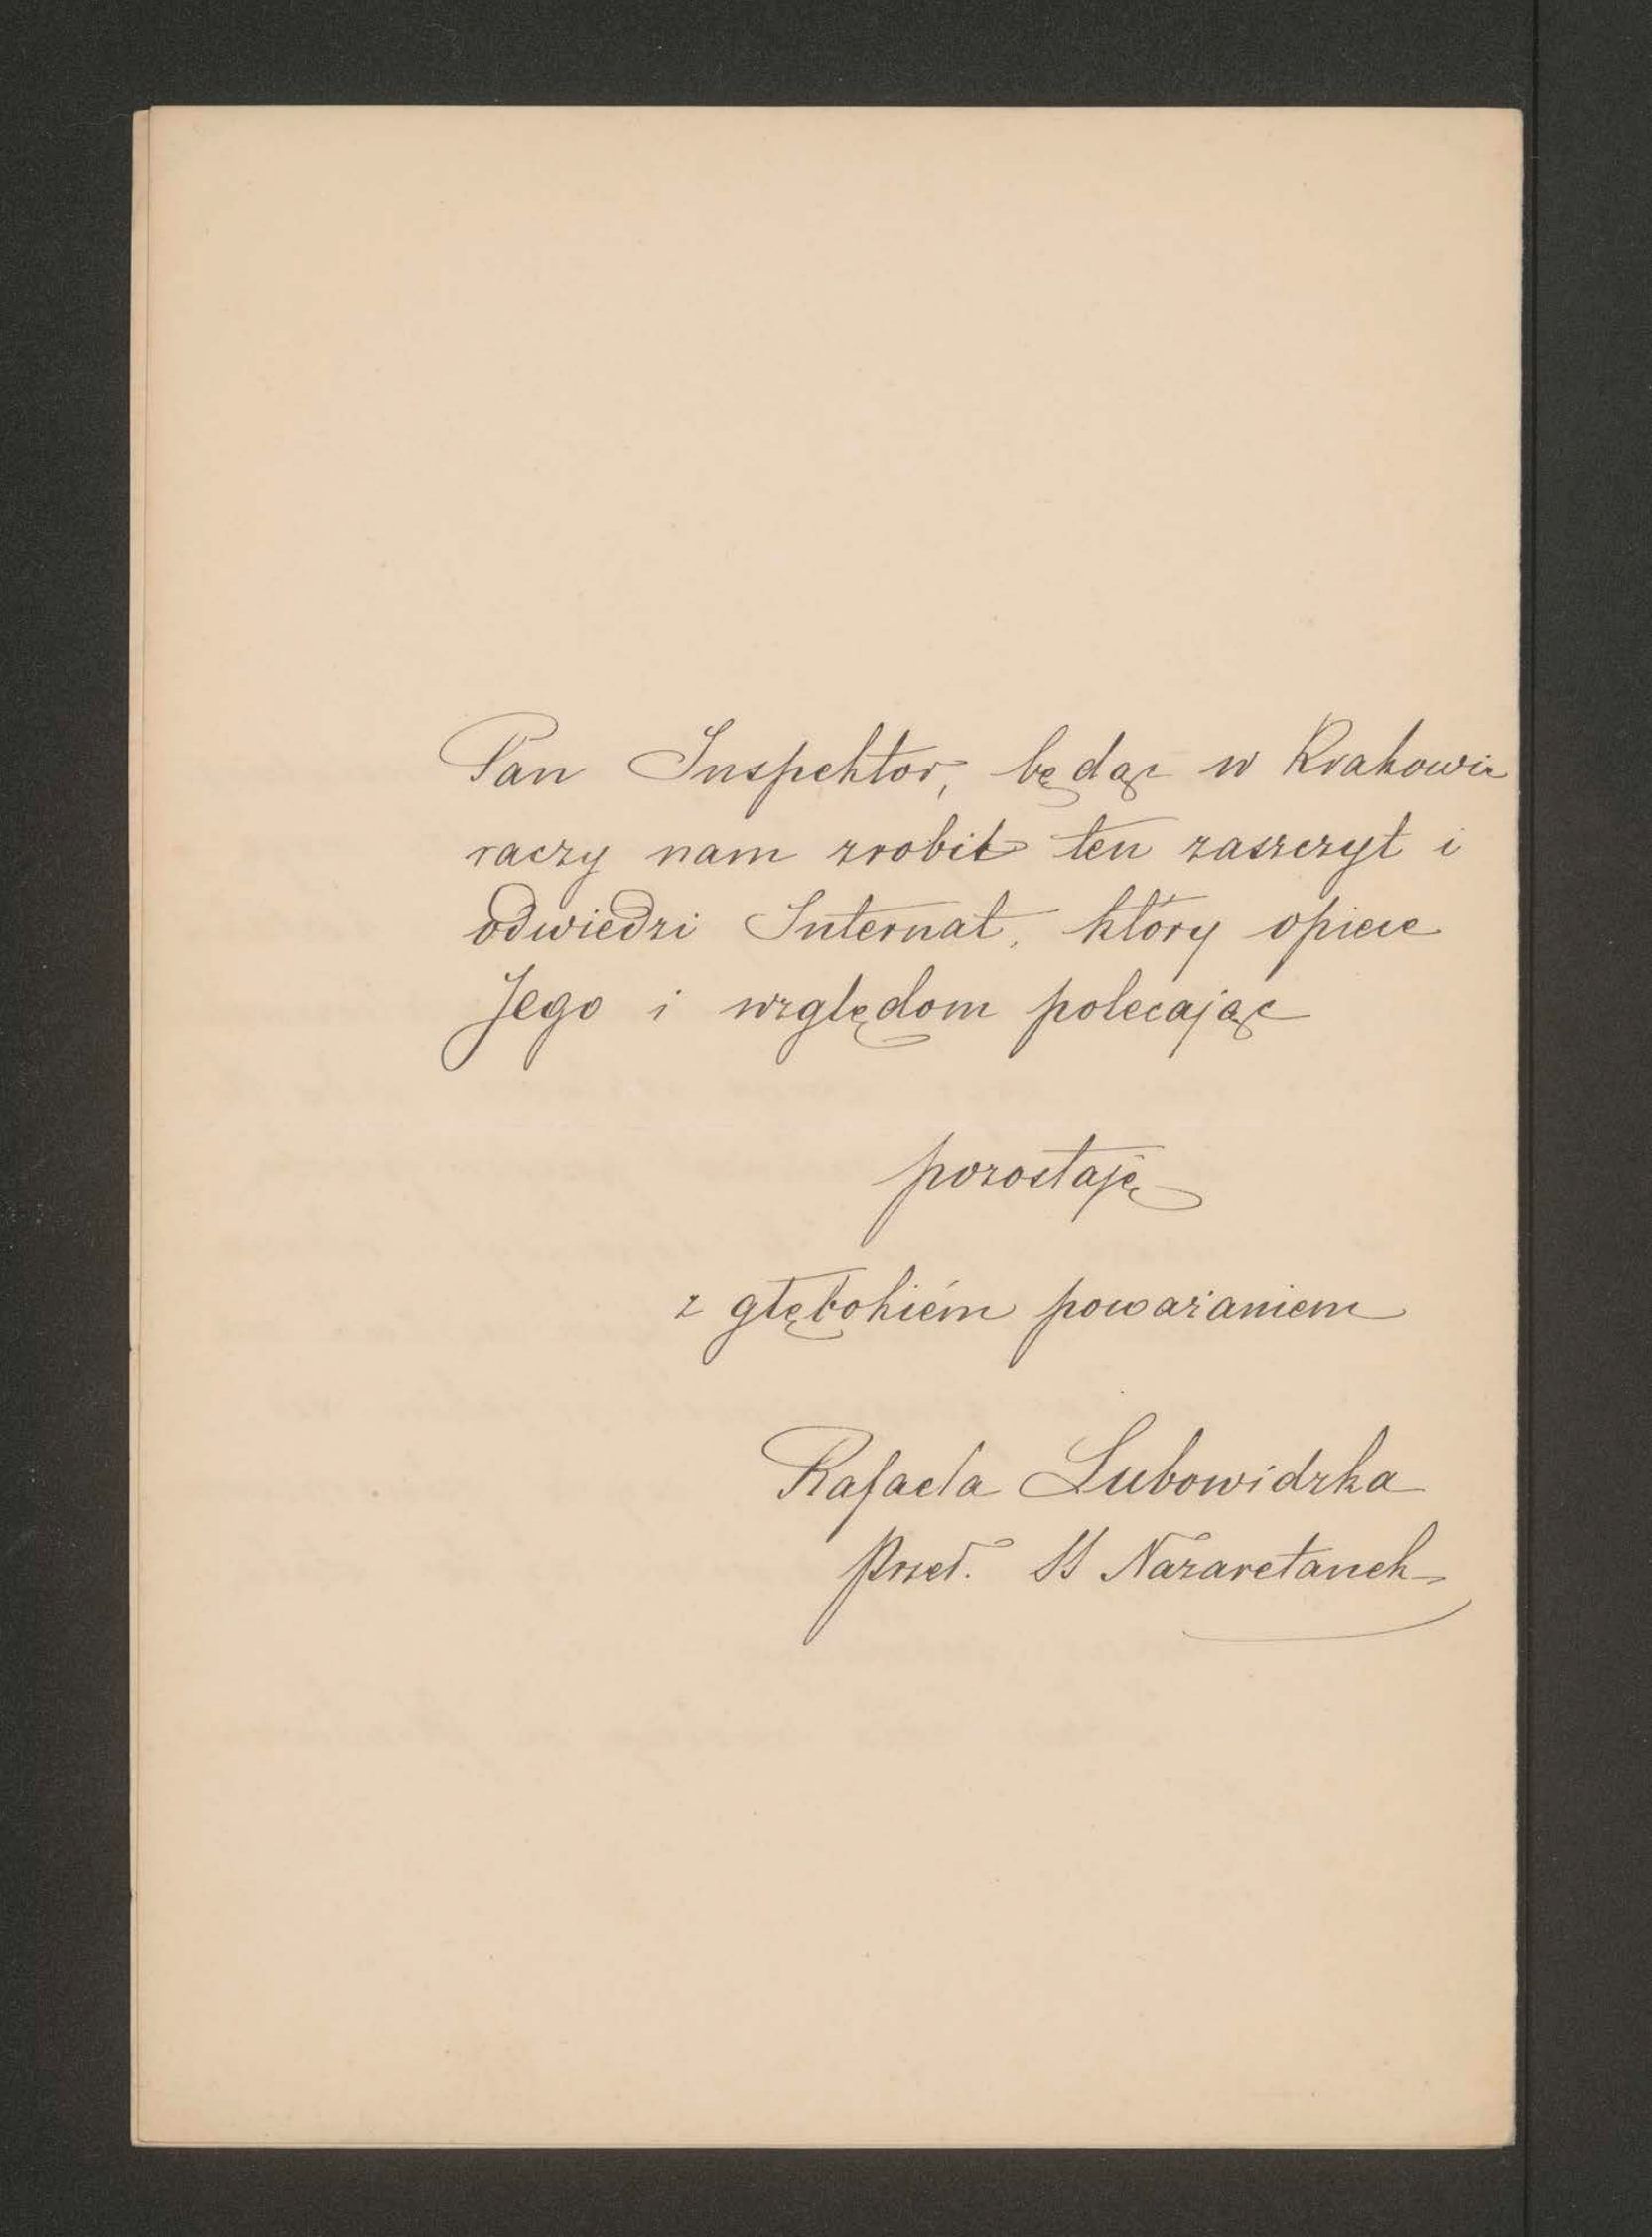 Pan Inspektor, będąc w Krakowie
raczy nam zrobić ten zaszczyt i
odwiedzi Internat, który opiece
Jego i względom polecając
pozostaję
z głębokiém poważaniem
Rafaela Lubowidzka
Przeł. SS Nazaretanek